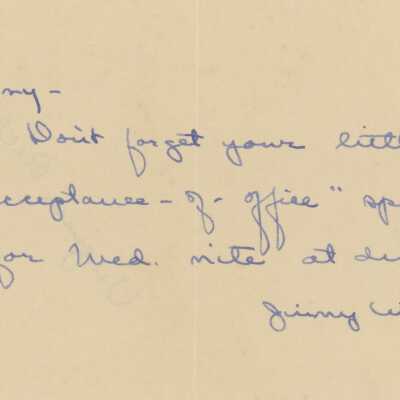 ny-
Don't forget your littl
cceptance-of-office" sp
for Wed. nite at di
Jimmy